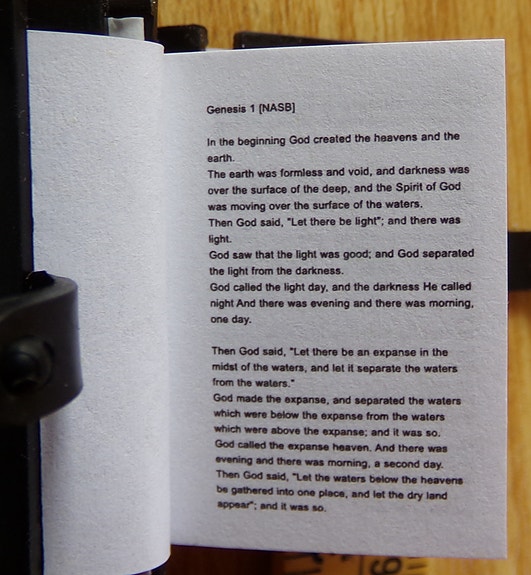 Genesis 1 [NASB]
In the beginning God created the heavens and the
earth.
The earth was formless and void, and darkness was
over the surface of the deep, and the Spirit of God
was moving over the surface of the waters.
Then God said, "Let there be light"; and there was
light.
God saw that the light was good; and God separated
the light from the darkness.
God called the light day, and the darkness He called
night And there was evening and there was morning,
one day.
Then God said, "Let there be an expanse in the
midst of the waters, and let it separate the waters
from the waters."
God made the expanse, and separated the waters
which were below the expanse from the waters
which were above the expanse; and it was so.
God called the expanse heaven. And there was
evening and there was morning, a second day.
Then God said, "Let the waters below the heavens
be gathered into one place, and let the dry land
appear"; and it was so.